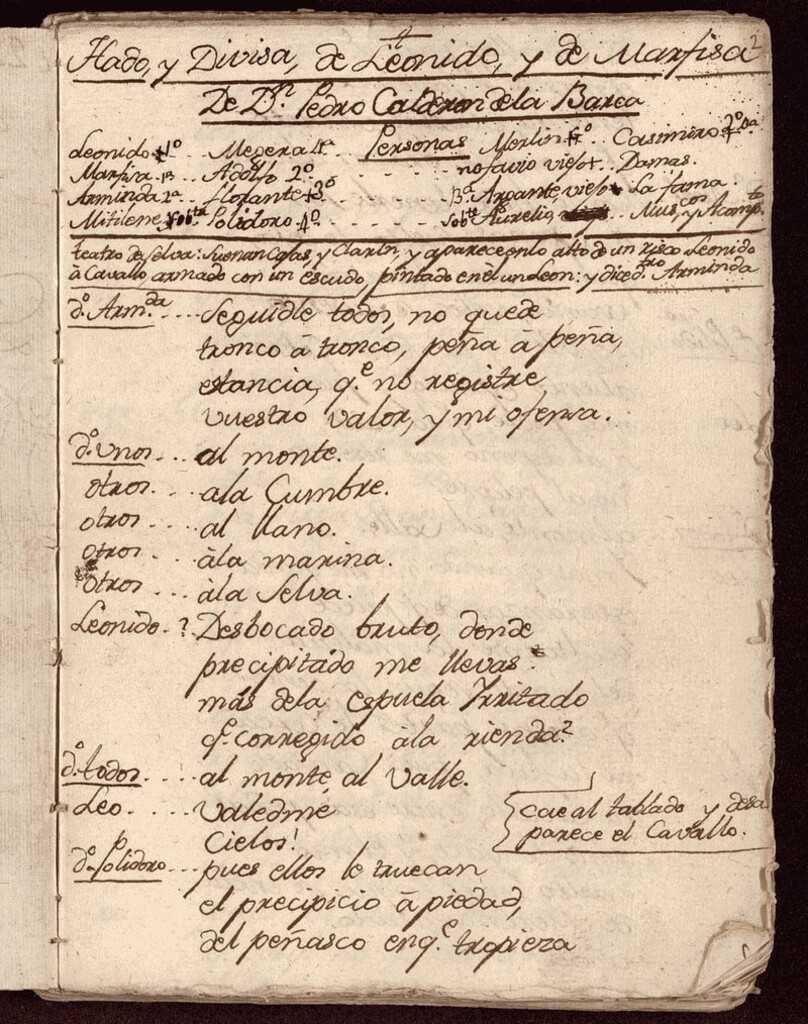 Hado, y Divisa, de Leonido, y de Marfisa
De Dn. Pedro Calderon dela Barca
Personas
Leonido 1º . . Megera 4ª . . Merlin . . Casimiro 2º
Marfisa . . Adolfo 2º . . . nofavio viejo . . Damas.
Arminda 2ª . . Florante 3º . . . Bª Argante, viejo . . La fama.
Mitilene sobtª Polidoro 4º . . . sobtº Aurelio . . Muscos y Acompto
teatro de selva: Suenan Cajas, y Clarin, y aparece en lo alto de un risco Leonido
à Cavallo armado con un escudo, pintado en el un Leon: y dice dtro Arminda
dº. Armda. . . . Seguidle todos, no quede
tronco à tronco, peña à peña,
estancia, qe. no registre
vuestro valor, y mi ofensa.
dº. Unos. . . al monte.
otros. . . ala Cumbre.
otros. . . al llano.
otros. . . àla marina.
otros. . . àla Selva.
Leonido. ? Desbocado bruto, donde
precipitado me llevas?
más dela espuela Irritado
qe. corregido àla rienda?
dº. todos. . . . al monte al Valle.
Leo. . . . Valedme
Cielos!
cae al tablado y desa
parece el Cavallo.
dº. Polidoro . . . pues ellos le truecan
el precipicio à piedad,
del peñasco enqe. tropieza